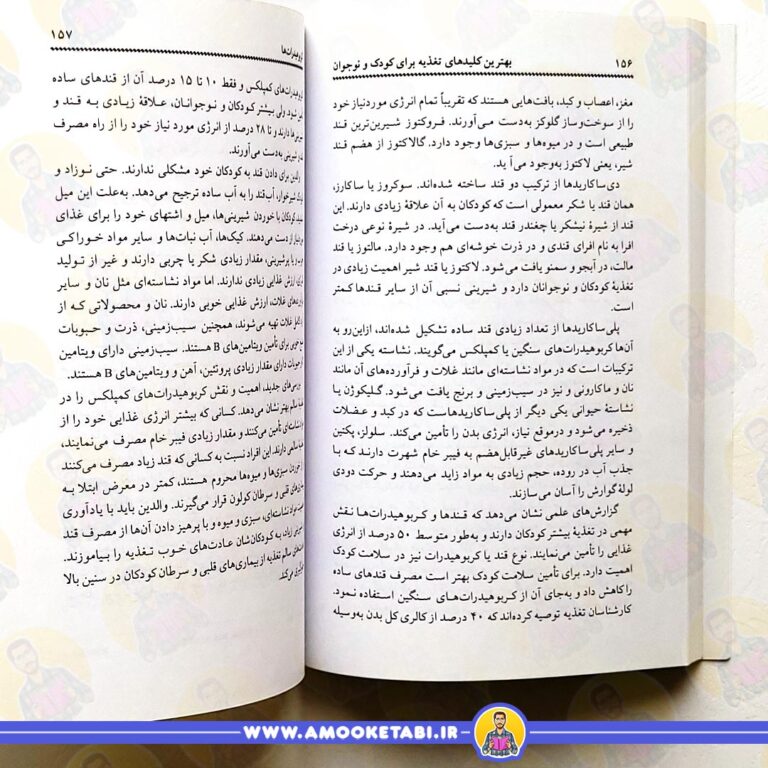 ۱۵۶ بهترین کلیدهای تغذیه برای کودک و نوجوان
مغز، اعصاب و کبد، بافت‌هایی هستند که تقریباً تمام انرژی موردنیاز خود
را از سوخت‌وساز گلوکز به‌دست می‌آورند. فروکتوز شیرین‌ترین قند
طبیعی است و در میوه‌ها و سبزی‌ها وجود دارد. گالاکتوز از هضم قند
شیر، یعنی لاکتوز به‌وجود می‌آید.
دی‌ساکاریدها از ترکیب دو قند ساخته شده‌اند. سوکروز یا ساکارز،
همان قند یا شکر معمولی است که کودکان به آن علاقهٔ زیادی دارند. این
قند از شیرهٔ نیشکر یا چغندر قند به‌دست می‌آید. در شیرهٔ نوعی درخت
افرا به نام افرای قندی و در ذرت خوشه‌ای هم وجود دارد. مالتوز یا قند
مالت، در آبجو و سمنو یافت می‌شود. لاکتوز یا قند شیر اهمیت زیادی در
تغذیهٔ کودکان و نوجوانان دارد و شیرینی نسبی آن از سایر قندها کمتر
است.
پلی‌ساکاریدها از تعداد زیادی قند ساده تشکیل شده‌اند، ازاین‌رو به
آن‌ها کربوهیدرات‌های سنگین یا کمپلکس می‌گویند. نشاسته یکی از این
ترکیبات است که در مواد نشاسته‌ای مانند غلات و فرآورده‌های آن مانند
نان و ماکارونی و نیز در سیب‌زمینی و برنج یافت می‌شود. گلیکوژن یا
نشاستهٔ حیوانی یکی دیگر از پلی‌ساکاریدهاست که در کبد و عضلات
ذخیره می‌شود و درموقع نیاز، انرژی بدن را تأمین می‌کند. سلولز، پکتین
و سایر پلی‌ساکاریدهای غیرقابل‌هضم به فیبر خام شهرت دارند که با
جذب آب در روده، حجم زیادی به مواد زاید می‌دهند و حرکت دودی
لولهٔ گوارش را آسان می‌سازند.
گزارش‌های علمی نشان می‌دهد که قندها و کربوهیدرات‌ها نقش
مهمی در تغذیهٔ بیشتر کودکان دارند و به‌طور متوسط ۵۰ درصد از انرژی
غذایی را تأمین می‌نمایند. نوع قند یا کربوهیدرات نیز در سلامت کودک
اهمیت دارد. برای تأمین سلامت کودک بهتر است مصرف قندهای ساده
را کاهش داد و به‌جای آن از کربوهیدرات‌های سنگین استفاده نمود.
کارشناسان تغذیه توصیه کرده‌اند که ۴۰ درصد از کالری کل بدن به‌وسیله
۱۵۷
کمپلکس و فقط ۱۰ تا ۱۵ درصد آن از قندهای ساده
شود. ولی بیشتر کودکان و نوجوانان، علاقهٔ زیادی به قند و
دارند و تا ۲۸ درصد از انرژی مورد نیاز خود را از راه مصرف
شیرینی به‌دست می‌آورند.
والدین برای دادن قند به کودکان خود مشکلی ندارند. حتی نوزاد و
شیرخوار، آب‌قند را به آب ساده ترجیح می‌دهد. به‌علت این میل
کودکان با خوردن شیرینی‌ها، میل و اشتهای خود را برای غذای
از دست می‌دهند. کیک‌ها، آب نبات‌ها و سایر مواد خوراکی
پرشیرینی، مقدار زیادی شکر یا چربی دارند و غیر از تولید
ارزش غذایی زیادی ندارند. اما مواد نشاسته‌ای مثل نان و سایر
غلات، ارزش غذایی خوبی دارند. نان و محصولاتی که از
غلات تهیه می‌شوند، همچنین سیب‌زمینی، ذرت و حبوبات
خوبی برای تأمین ویتامین‌های B هستند. سیب‌زمینی دارای ویتامین
حبوبات دارای مقدار زیادی پروتئین، آهن و ویتامین‌های B هستند.
جدید، اهمیت و نقش کربوهیدرات‌های کمپلکس را در
سالم بهتر نشان می‌دهد. کسانی که بیشتر انرژی غذایی خود را از
نشاسته‌ای تأمین می‌کنند و مقدار زیادی فیبر خام مصرف می‌نمایند،
سالمی دارند. این افراد نسبت به کسانی که قند زیاد مصرف می‌کنند
خوردن سبزی‌ها و میوه‌ها محروم هستند، کمتر در معرض ابتلا به
قلبی و سرطان کولون قرار می‌گیرند. والدین باید با یادآوری
مواد نشاسته‌ای، سبزی و میوه و با پرهیز دادن آن‌ها از مصرف قند
زیاد، به کودکان‌شان عادت‌های خوب تغذیه را بیاموزند.
سالم تغذیه از بیماری‌های قلبی و سرطان کودکان در سنین بالا
می‌کند.
WWW.AMOOKETABI.IR